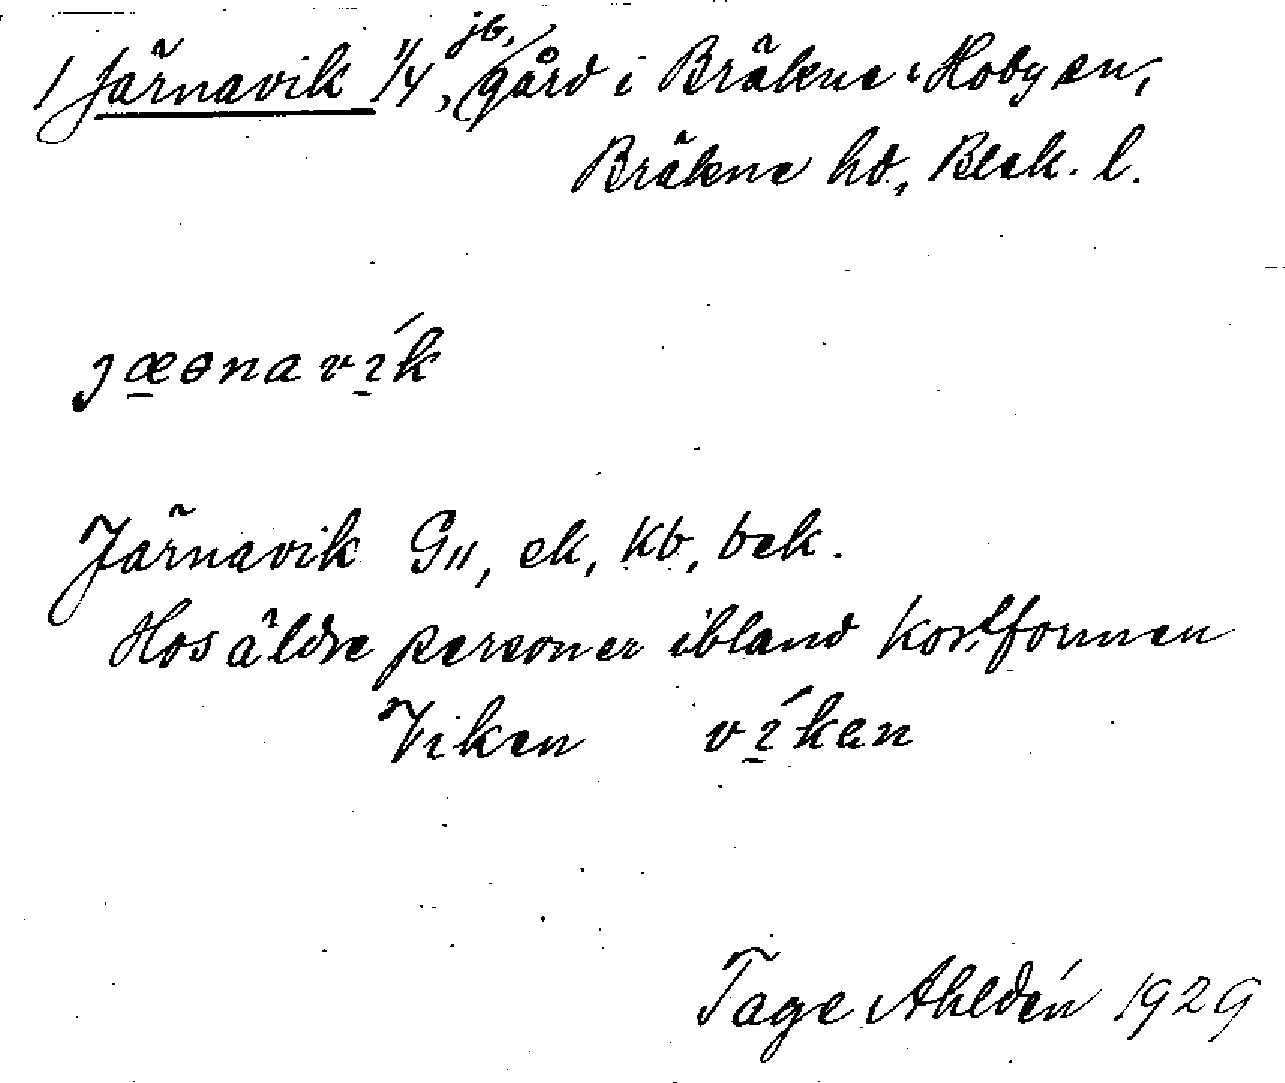 1 Järnavik 1/4 jb., gård i Bräkne-Hoby sn,
Bräkne hd, Blek. l.
jæənavík
Järnavik G11, ek, kb, bek.
Hos äldre personer ibland kortformen
Viken víken
Tage Ahldén 1929